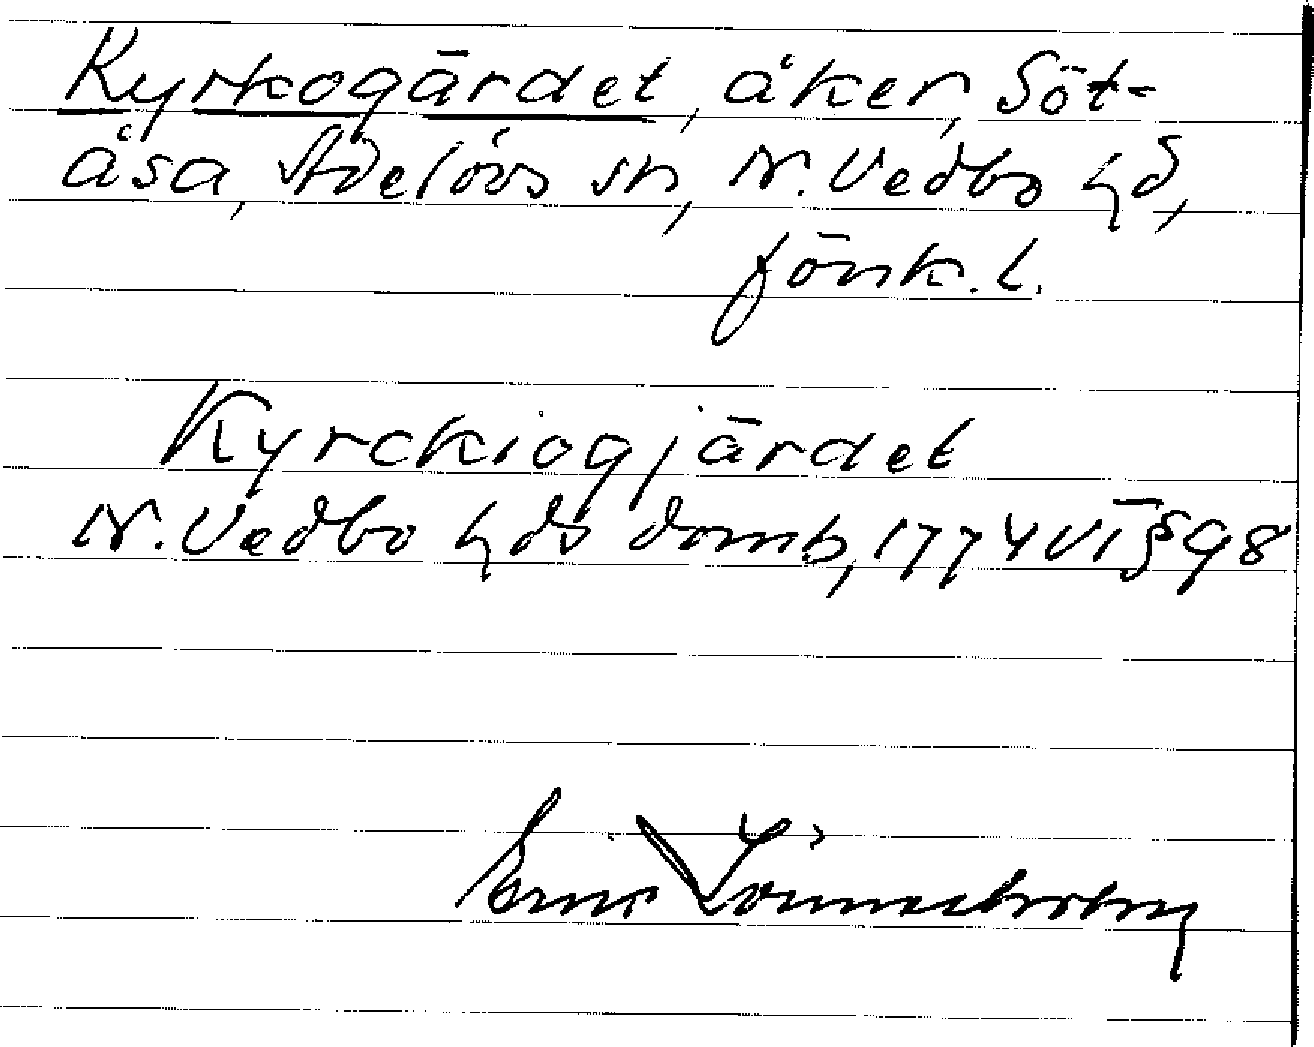 Kyrkogärdet, åker, Söt-
åsa, Adelövs sn, N. Vedbo hd,
Jönk. l.
Kyrckiogjärdet
N. Vedbo hds domb, 1774 VI § 98